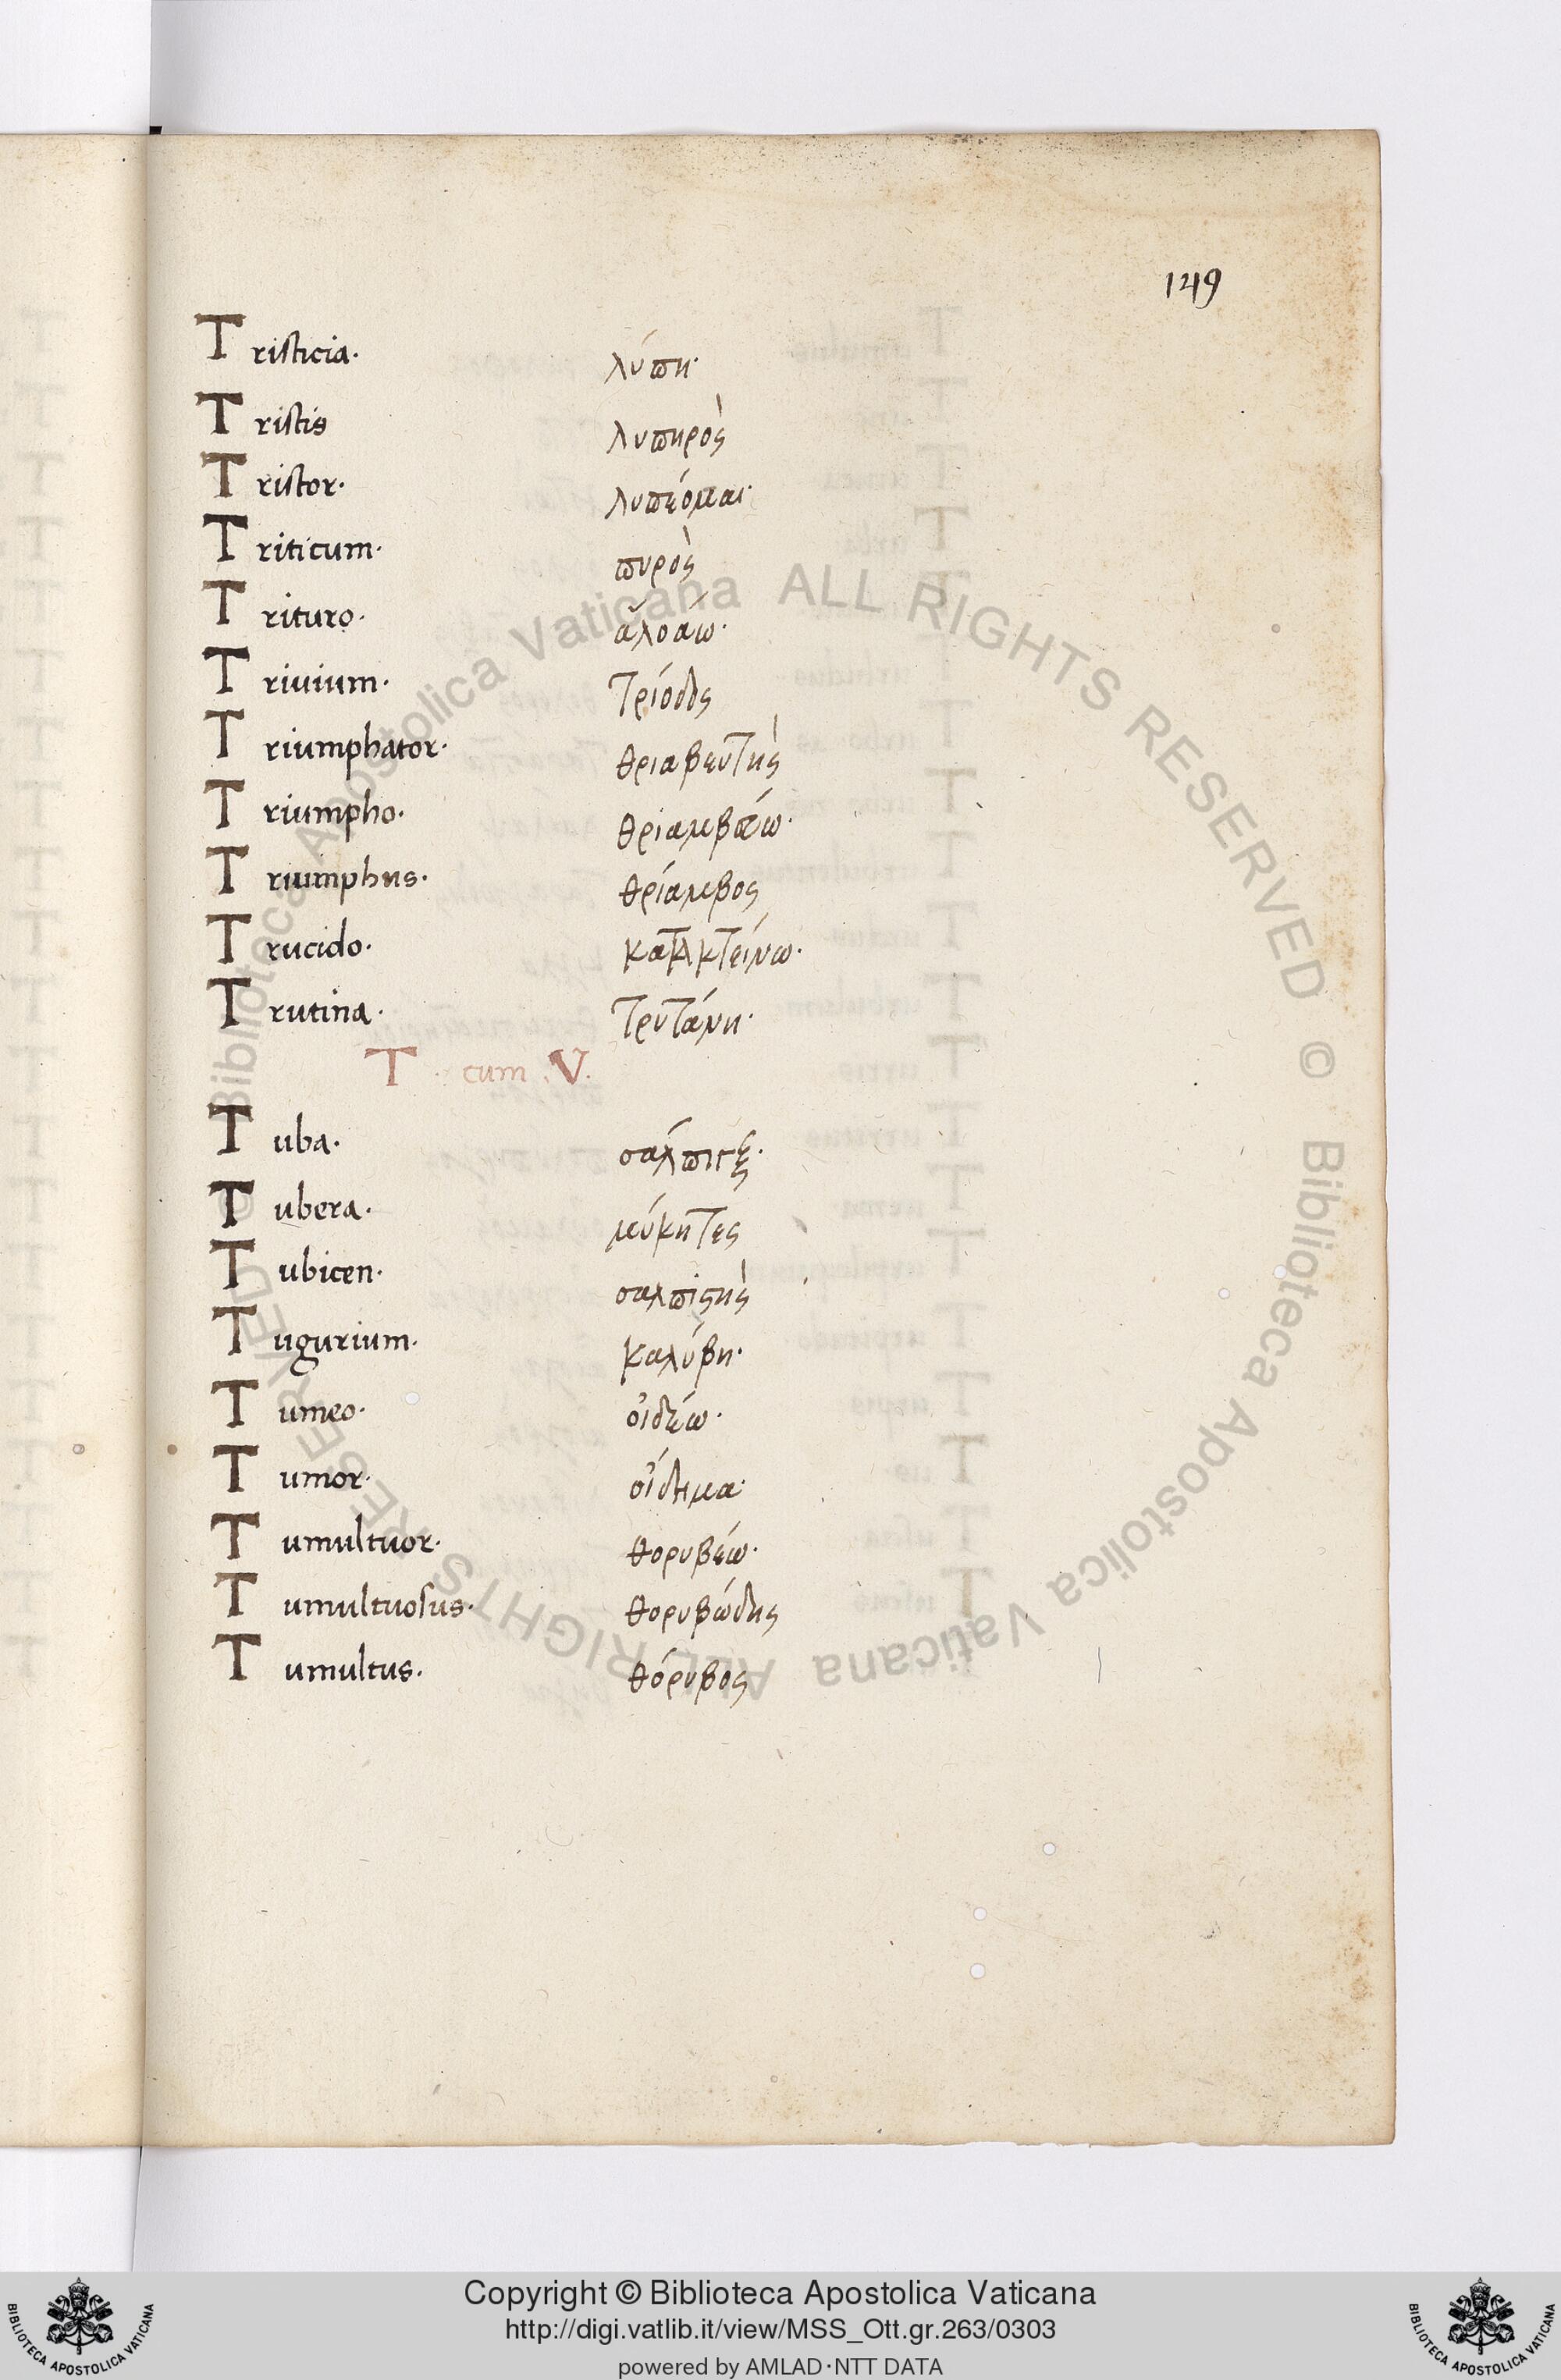 149
Tristicia. λύπη·
Tristis λυπηρὸς
Tristor. λυπέομαι·
Triticum. πυρὸς
Trituro. ἀλοάω·
Trivium. τρίοδος
Triumphator. θριαβευτὴς
Triumpho.
Triumphus. θρίαμβος
Trucido. κατακτείνω·
Trutina. τρυτάνη·
T. cum .V.
Tuba. σάλπιγξ·
Tubera. μύκητες
Tubicen. σαλπιστὴς
Tugurium. καλύβη·
Tumeo. οἰδέω·
Tumor. οἴδημα·
Tumultuor. θορυβέω·
Tumultuosus. θορυβώδης
Tumultus. θόρυβος
© Biblioteca Apostolica Vaticana ALL RIGHTS RESERVED © Biblioteca Apostolica Vaticana ALL RIGHTS RESERVED
Copyright © Biblioteca Apostolica Vaticana
http://digi.vatlib.it/view/MSS_Ott.gr.263/0303
powered by AMLAD·NTT DATA
BIBLIOTECA APOSTOLICA VATICANA
BIBLIOTECA APOSTOLICA VATICANA